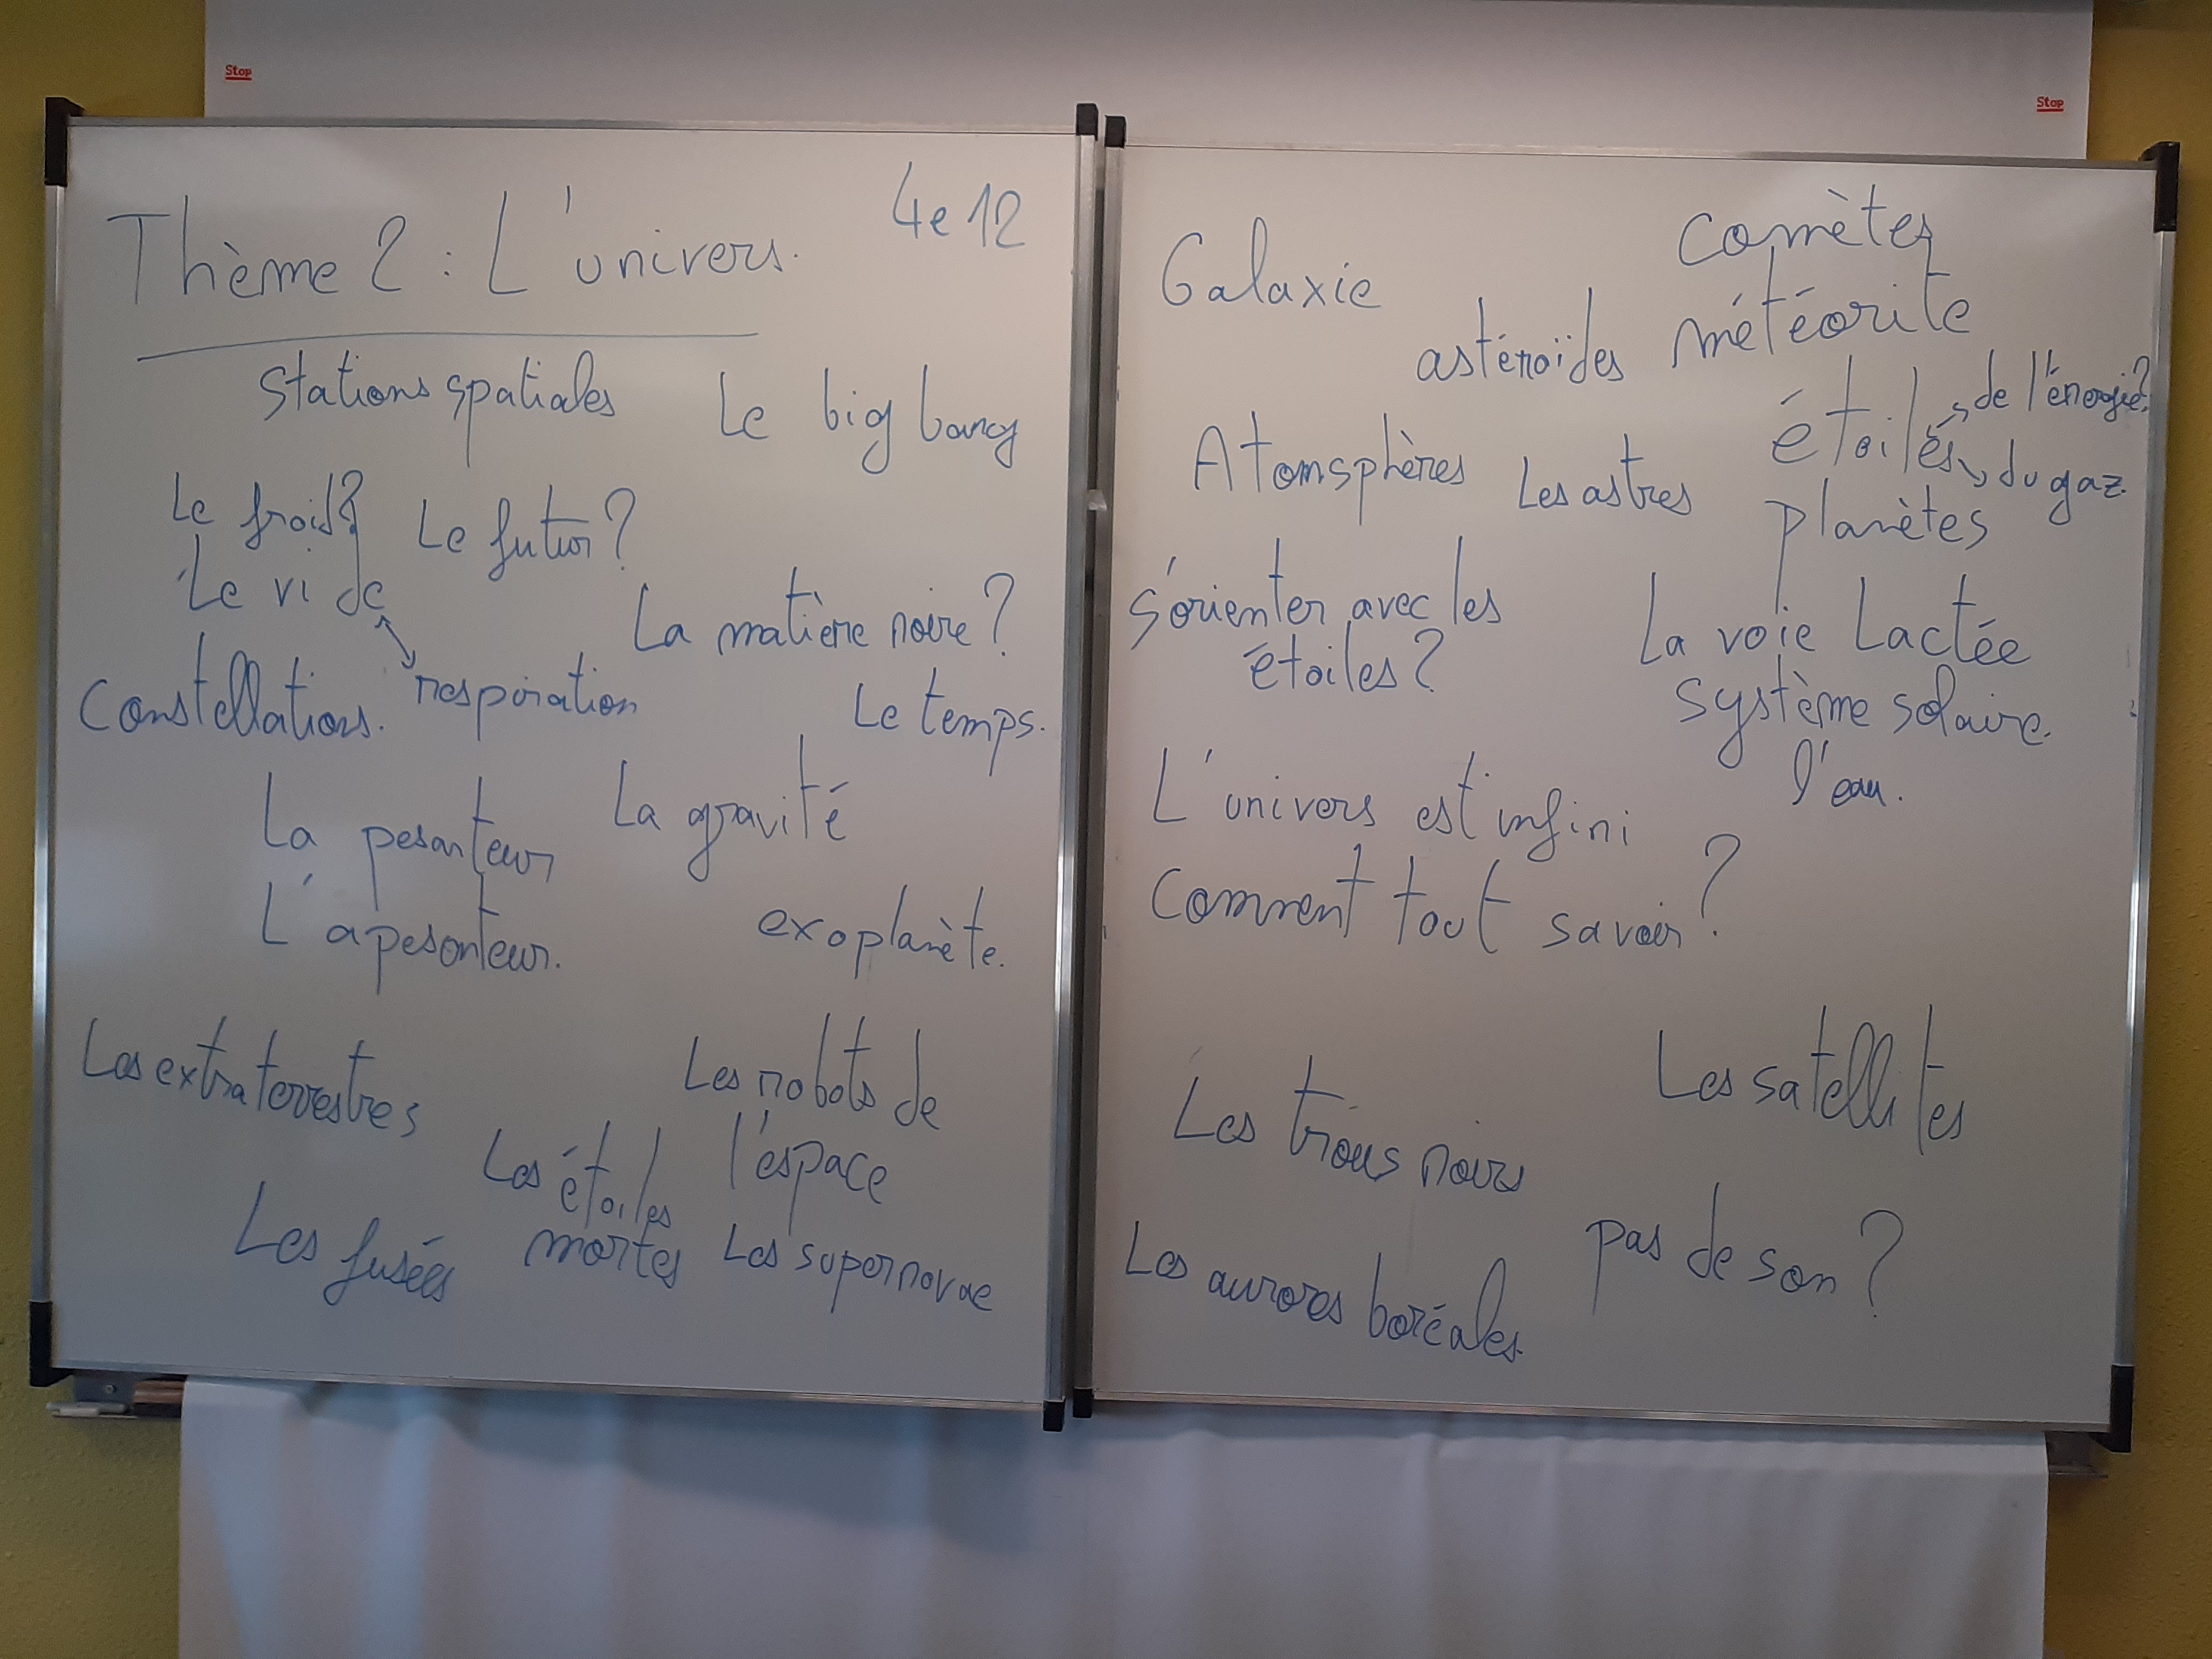 Stop
Stop
4e12
Thème 2 : L'univers.
Stations spatiales
Le big bang
Le froid?
Le futur?
Le vide
La matière noire?
Constellations.
respiration
Le temps.
La pesanteur
La gravité
L'apesanteur.
exoplanète.
Les extraterrestres
Les robots de
l'espace
Les étoiles
mortes
Les fusées
Les supernovae
Galaxie
comètes
astéroïdes
météorite
Atomsphères
Les astres
étoiles
de l'énergie?
du gaz
planètes
s'orienter avec les
étoiles?
La voie Lactée
système solaire.
l'eau.
L'univers est infini
Comment tout savoir?
Les satellites
Les trous noirs
pas de son?
Les aurores boréales.